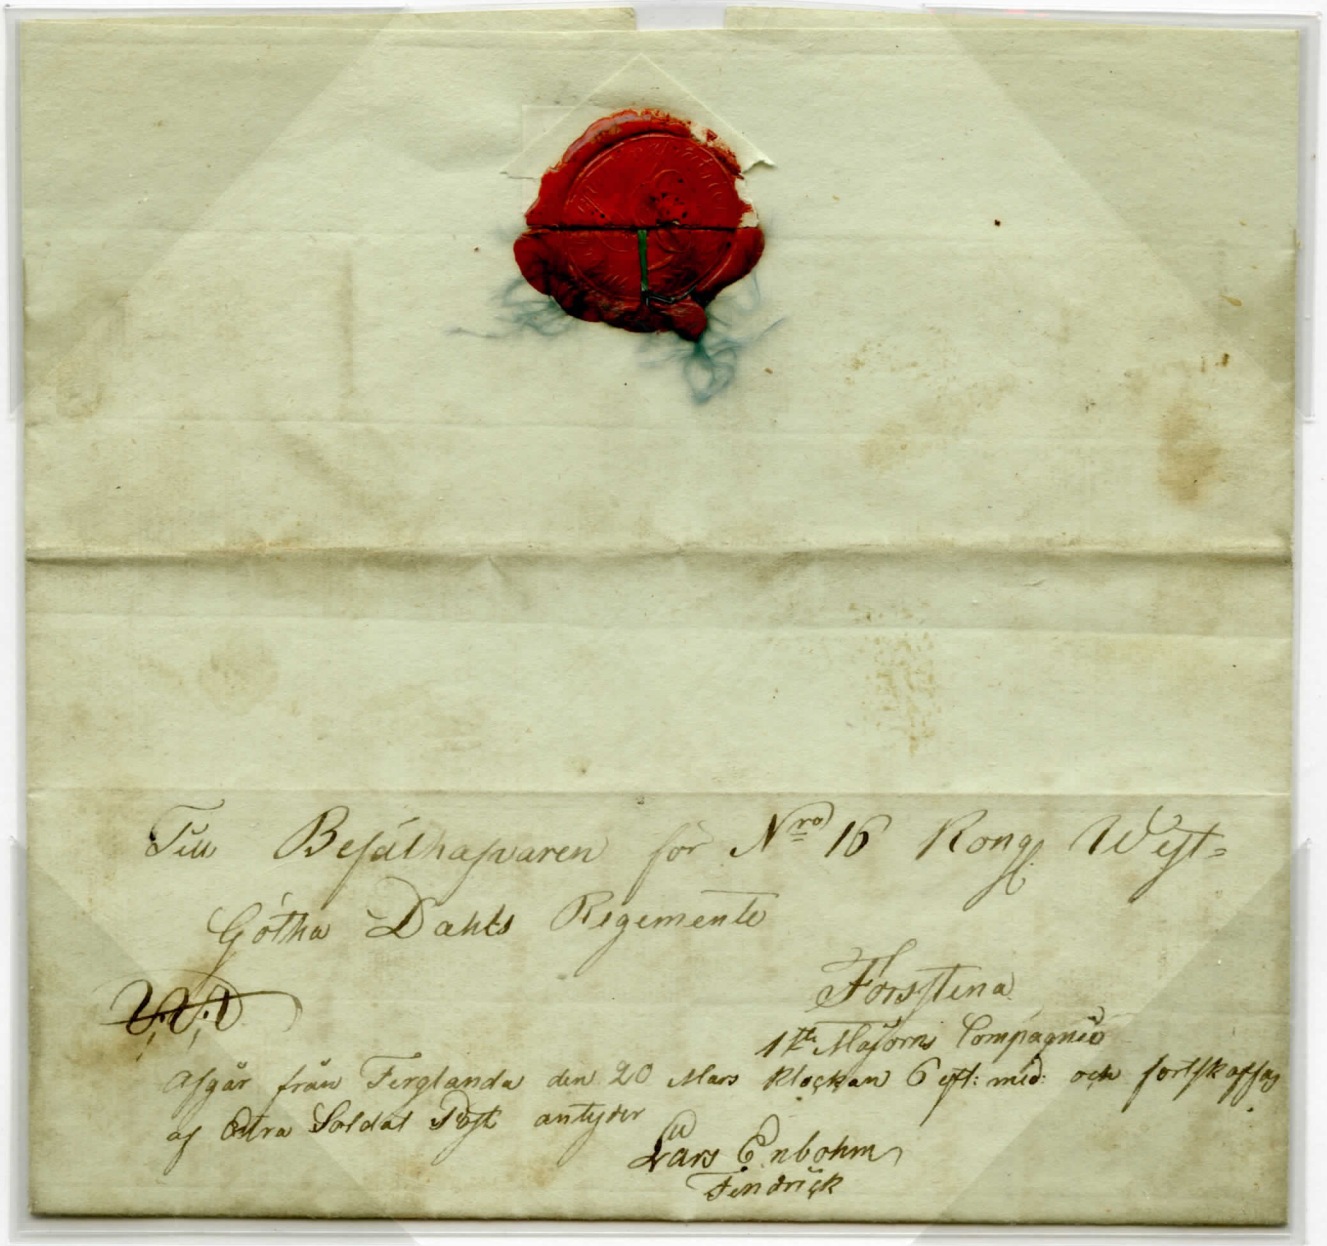 Till Befälhafvaren för Nro 16 Kongl West=
Götha Dahls Regemente
Försstena
1ta Majorns Compagnie
Afgår från Ferglanda den 20 Mars Klockan 6 eft: mid: och fortskaffas
af Extra Soldat Post antyder
Lars Enbohm
Fendrick